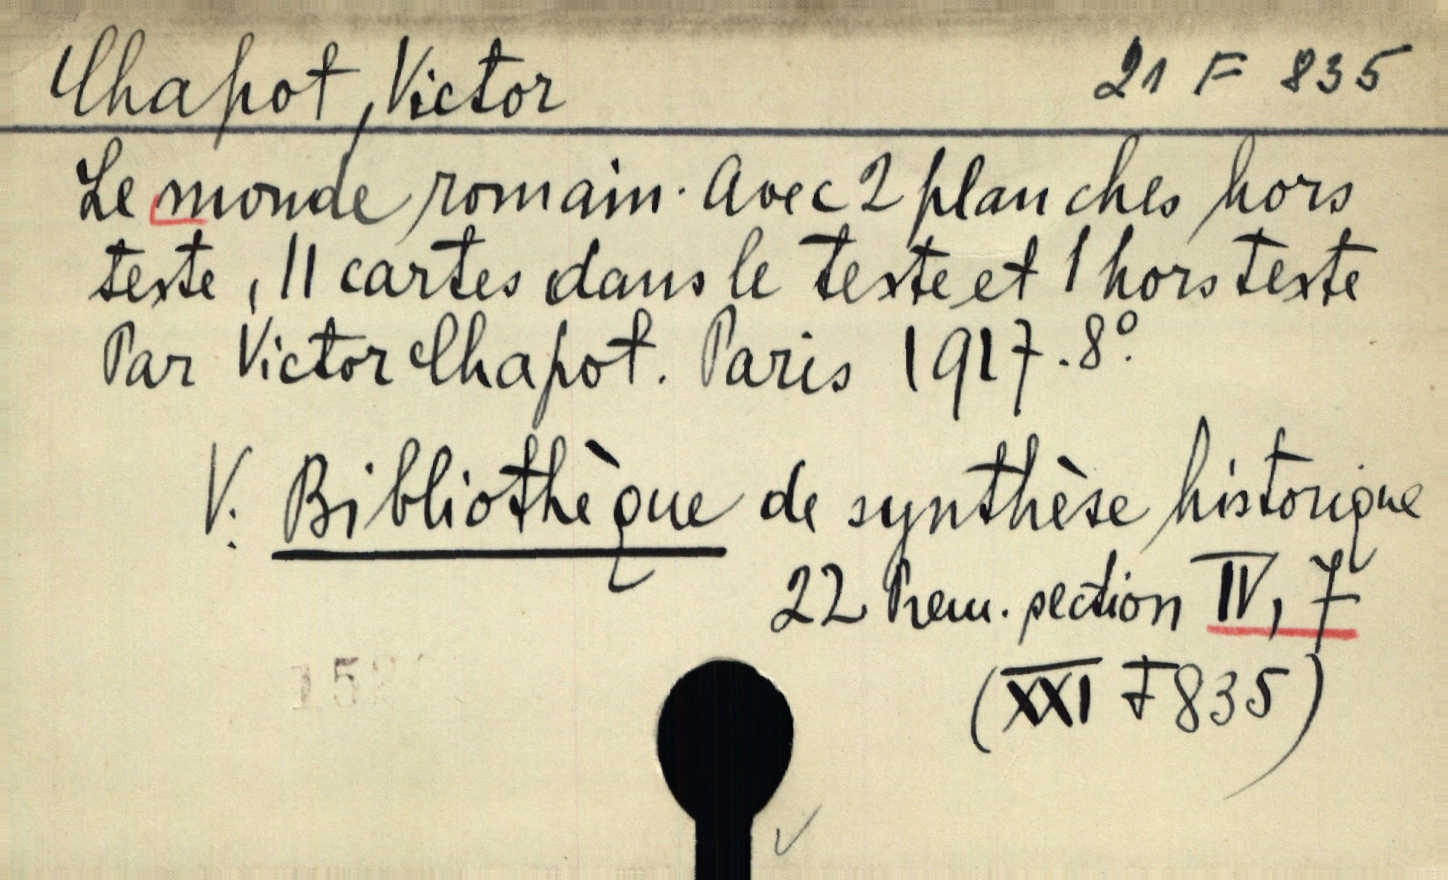 Chapot, Victor 21 F 835
Le monde romain. Avec 2 planches hors
texte, 11 cartes dans le texte et 1 hors texte
Par Victor Chapot. Paris 1917. 8º.
V. Bibliothèque de synthèse historique
22 Prem. section IV, 7
(XXI F 835)